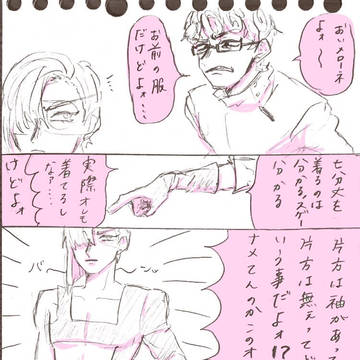 おいメローネ
よォ〜
お前の服
だけどよォ…
七分丈を
着るのは
分かるスゲー
分かる
実際オレも
着てるし
なァ……
けどよォ
片方は袖があっ
片方は無ェって
いう事だよォ!?
ナメてんのかこのオ
バァーン